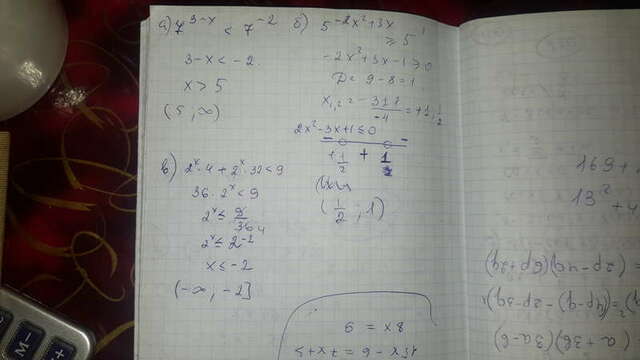 а) 7^3-x < 7^-2
3-x < -2
x > 5
(5; ∞)
б) 5^-2x²+3x ≥ 5^1
-2x²+3x-1 ≥ 0
D = 9-8=1
x1,2 = -3±1/-4 = +1, 1/2
2x²-3x+1 ≤ 0
+ 1/2 + 1
(1/2; 1)
в) 2^x·4 + 2^x·32 < 9
36·2^x < 9
2^x ≤ 9/36 4
2^x ≤ 2^-2
x ≤ -2
(-∞; -2]
15x - 6 = 7x+3
8x = 9
169 +
13² + 4
= (2p-4q)(6p+2q)
)² = (4p-q) - 2p-3q
a + 3b)(3a-b)
M-